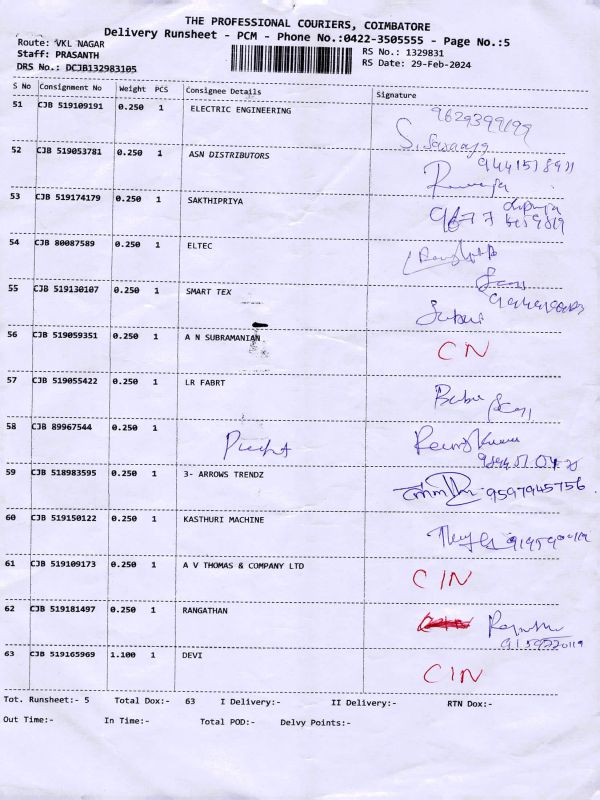 THE PROFESSIONAL COURIERS, COIMBATORE
Delivery Runsheet - PCM - Phone No.:0422-3505555 - Page No.:5
Route: VKL NAGAR
RS No.: 1329831
Staff: PRASANTH
RS Date: 29-Feb-2024
DRS No.: DCJB132983105
S No Consignment No Weight PCS Consignee Details Signature
51 CJB 519109191 0.250 1 ELECTRIC ENGINEERING
52 CJB 519053781 0.250 1 ASN DISTRIBUTORS
53 CJB 519174179 0.250 1 SAKTHIPRIYA
54 CJB 80087589 0.250 1 ELTEC
55 CJB 519130107 0.250 1 SMART TEX
56 CJB 519059351 0.250 1 A N SUBRAMANIAN CN
57 CJB 519055422 0.250 1 LR FABRT Babu
58 CJB 89967544 0.250 1
59 CJB 518983595 0.250 1 3- ARROWS TRENDZ 9597945756
60 CJB 519150122 0.250 1 KASTHURI MACHINE
61 CJB 519109173 0.250 1 A V THOMAS & COMPANY LTD CIN
62 CJB 519181497 0.250 1 RANGATHAN
63 CJB 519165969 1.100 1 DEVI CIN
Tot. Runsheet:- 5 Total Dox:- 63 I Delivery:- II Delivery:- RTN Dox:-
Out Time:- In Time:- Total POD:- Delvy Points:-